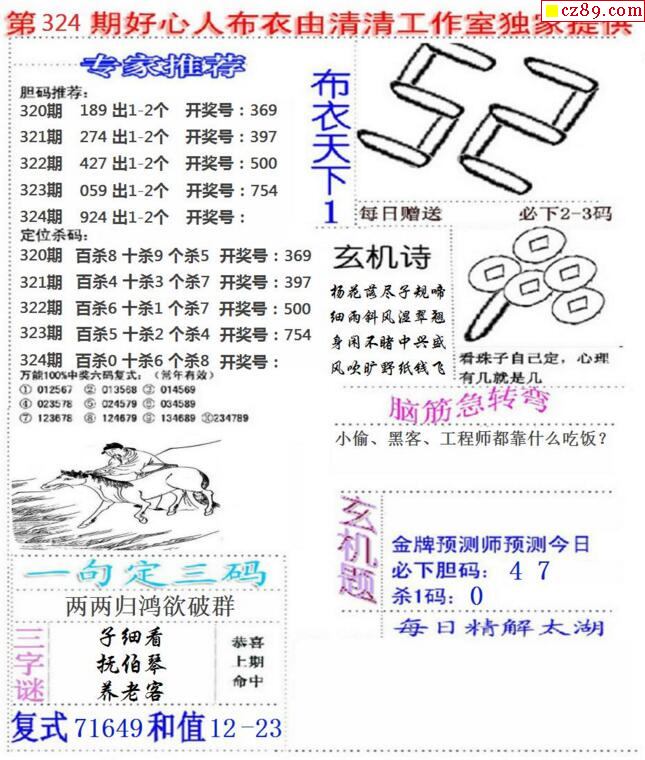 cz89.com
第324期好心人布衣由清清工作室独家提供
专家推荐
胆码推荐:
320期 189 出1-2个 开奖号:369
321期 274 出1-2个 开奖号:397
322期 427 出1-2个 开奖号:500
323期 059 出1-2个 开奖号:754
324期 924 出1-2个 开奖号:
定位杀码:
320期 百杀8 十杀9 个杀5 开奖号:369
321期 百杀4 十杀3 个杀7 开奖号:397
322期 百杀6 十杀1 个杀7 开奖号:500
323期 百杀5 十杀2 个杀4 开奖号:754
324期 百杀0 十杀6 个杀8 开奖号:
万能100%中奖六码复式:(常年有效)
① 012567 ② 013568 ③ 014569
④ 023578 ⑤ 024579 ⑥ 034589
⑦ 123678 ⑧ 124679 ⑨ 134689 ⑩234789
一句定三码
两两归鸿欲破群
三字谜
子细看
抚伯琴
养老客
恭喜
上期
命中
复式 71649 和值 12-23
布衣天下1
52
每日赠送 必下2-3码
玄机诗
杨花落尽子规啼
细雨斜风湿翠翘
身闲不睹中兴盛
风吹旷野纸钱飞
看珠子自己定,心理
有几就是几
脑筋急转弯
小偷、黑客、工程师都靠什么吃饭?
玄机题
金牌预测师预测今日
必下胆码: 4 7
杀1码: 0
每日精解太湖